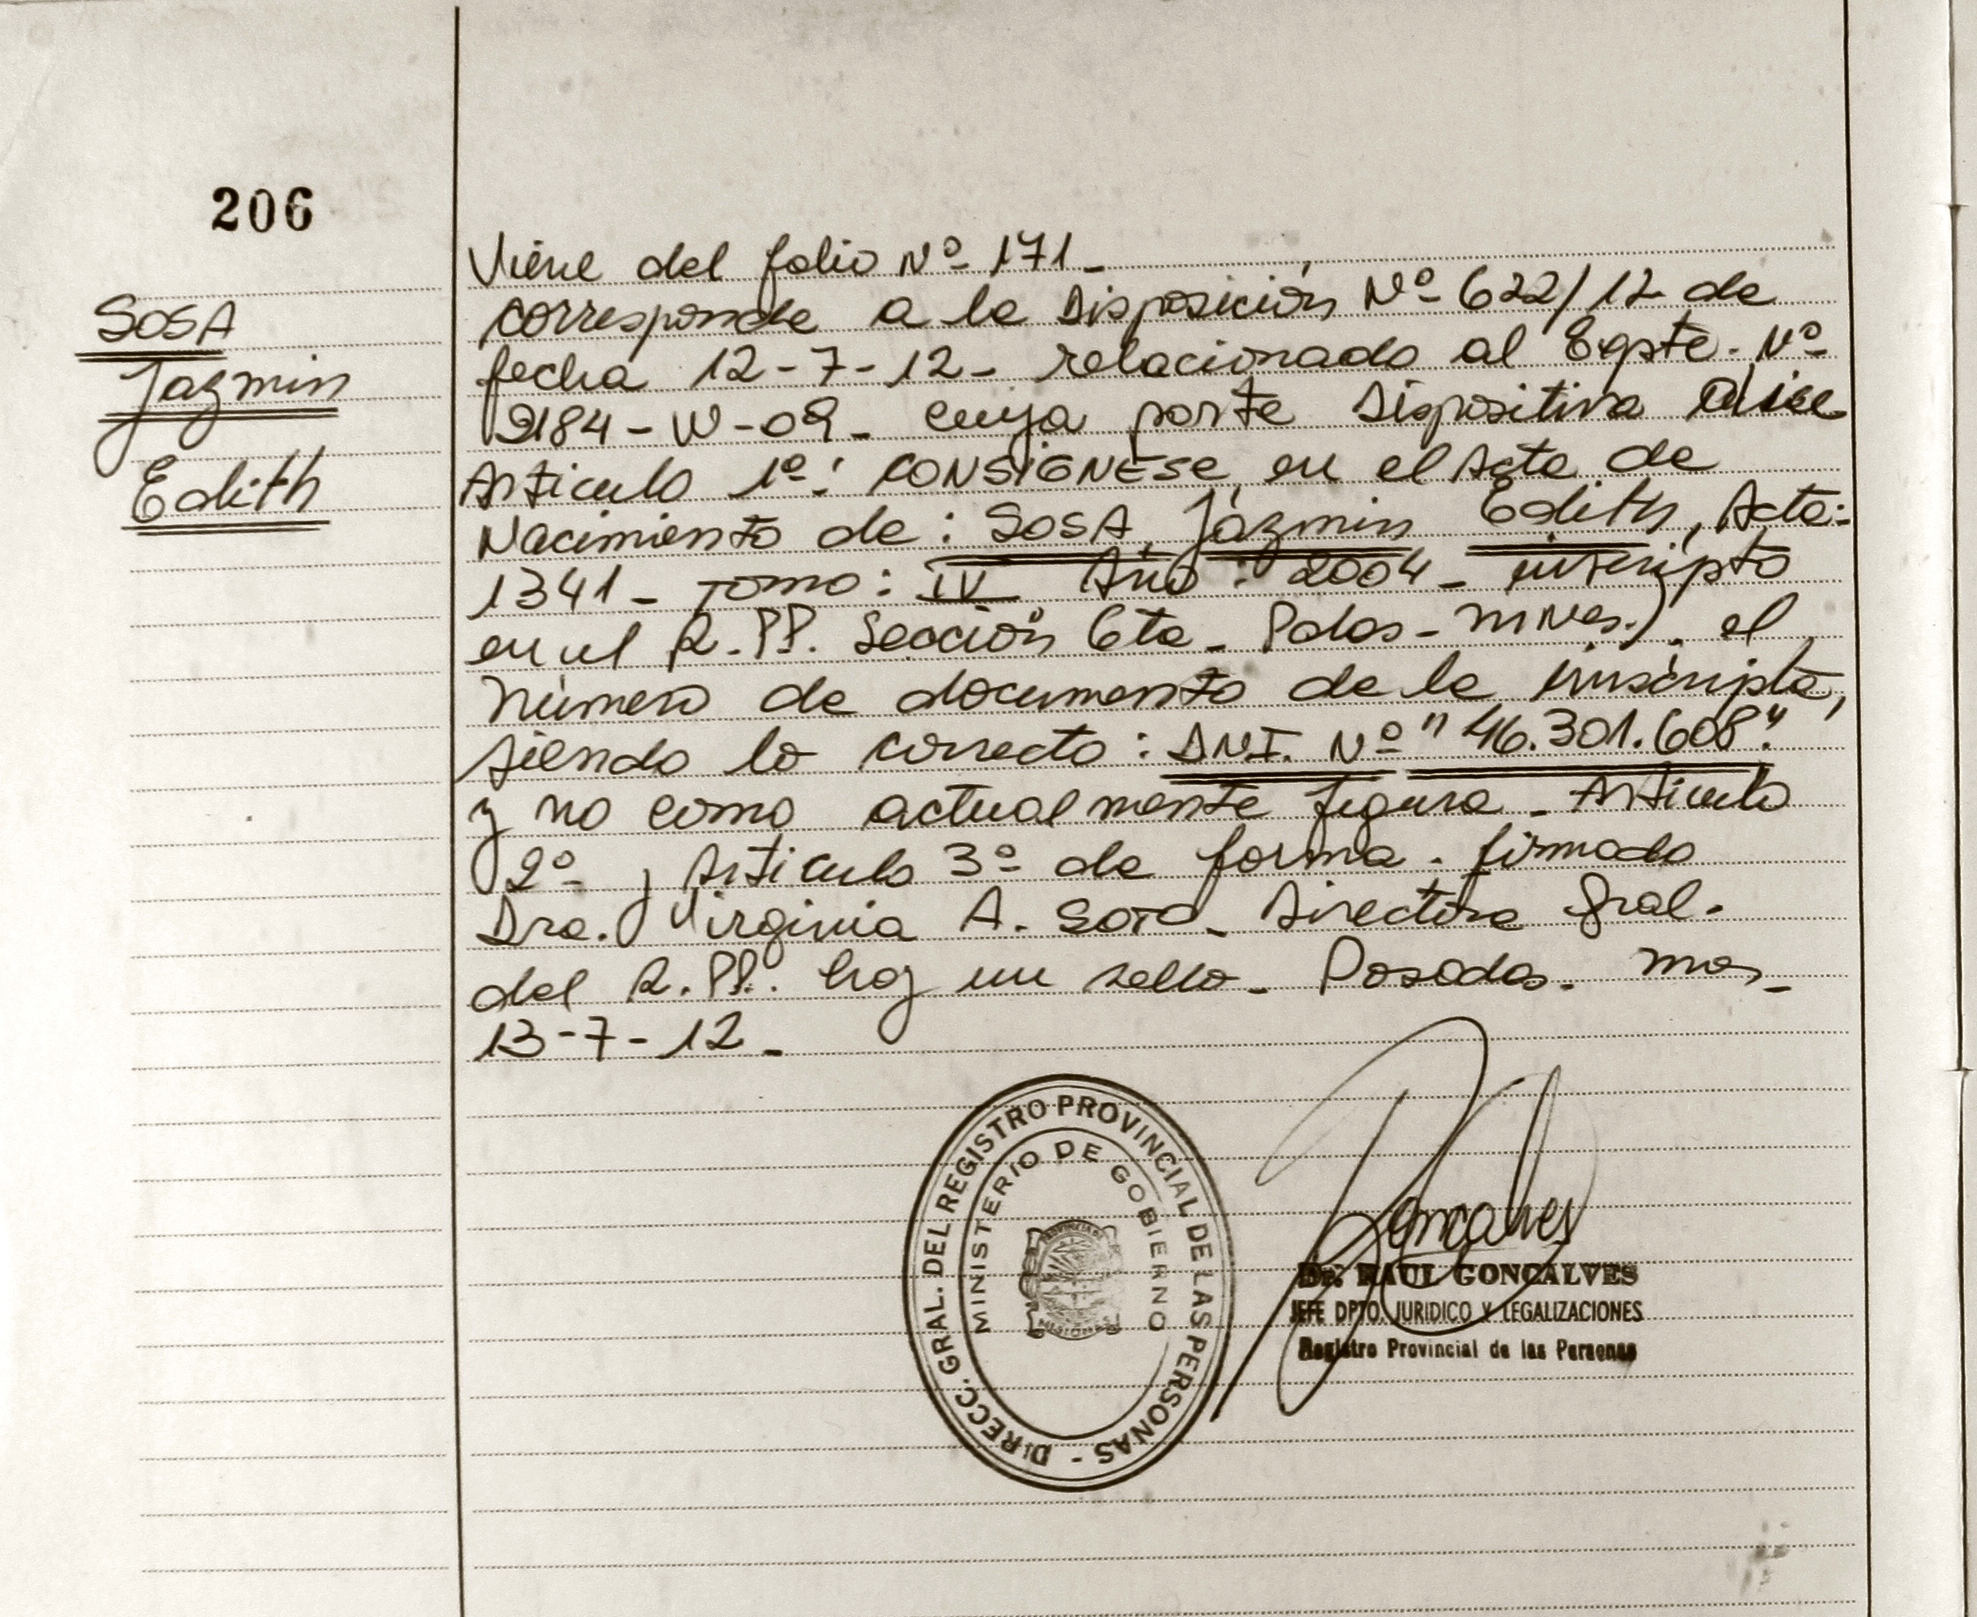 206
SOSA
Jazmin
Edith
Viene del folio Nº 171_
corresponde a la Disposición Nº 622/12 de
fecha 12-7-12_ relacionado al Expte. Nº
2184-W-09_ cuya parte Dispositiva dice
Articulo 1º: CONSIGNESE en el Acta de
Nacimiento de: SOSA, Jazmin Edith, Acta:
1341_ Tomo: IV Año: 2004_ inscripto
en el R.PP. Sección 6ta_ Pdas_ Mnes.). el
número de documento de la inscripta,
siendo lo correcto: DNI. Nº "46.301.608."
y no como actualmente figura_ Articulo
2º y Articulo 3º de forma. firmado
Dra. Virginia A. Soto_ Directora Gral.
del R.PP. hay un sello_ Posadas. Mnes_
13-7-12_
DIRECC. GRAL. DEL REGISTRO PROVINCIAL DE LAS PERSONAS -
MINISTERIO DE GOBIERNO
PROVINCIA DE
MISIONES
Gonçalves
Dr. RAUL GONCALVES
JEFE DPTO. JURIDICO Y LEGALIZACIONES
Registro Provincial de las Personas